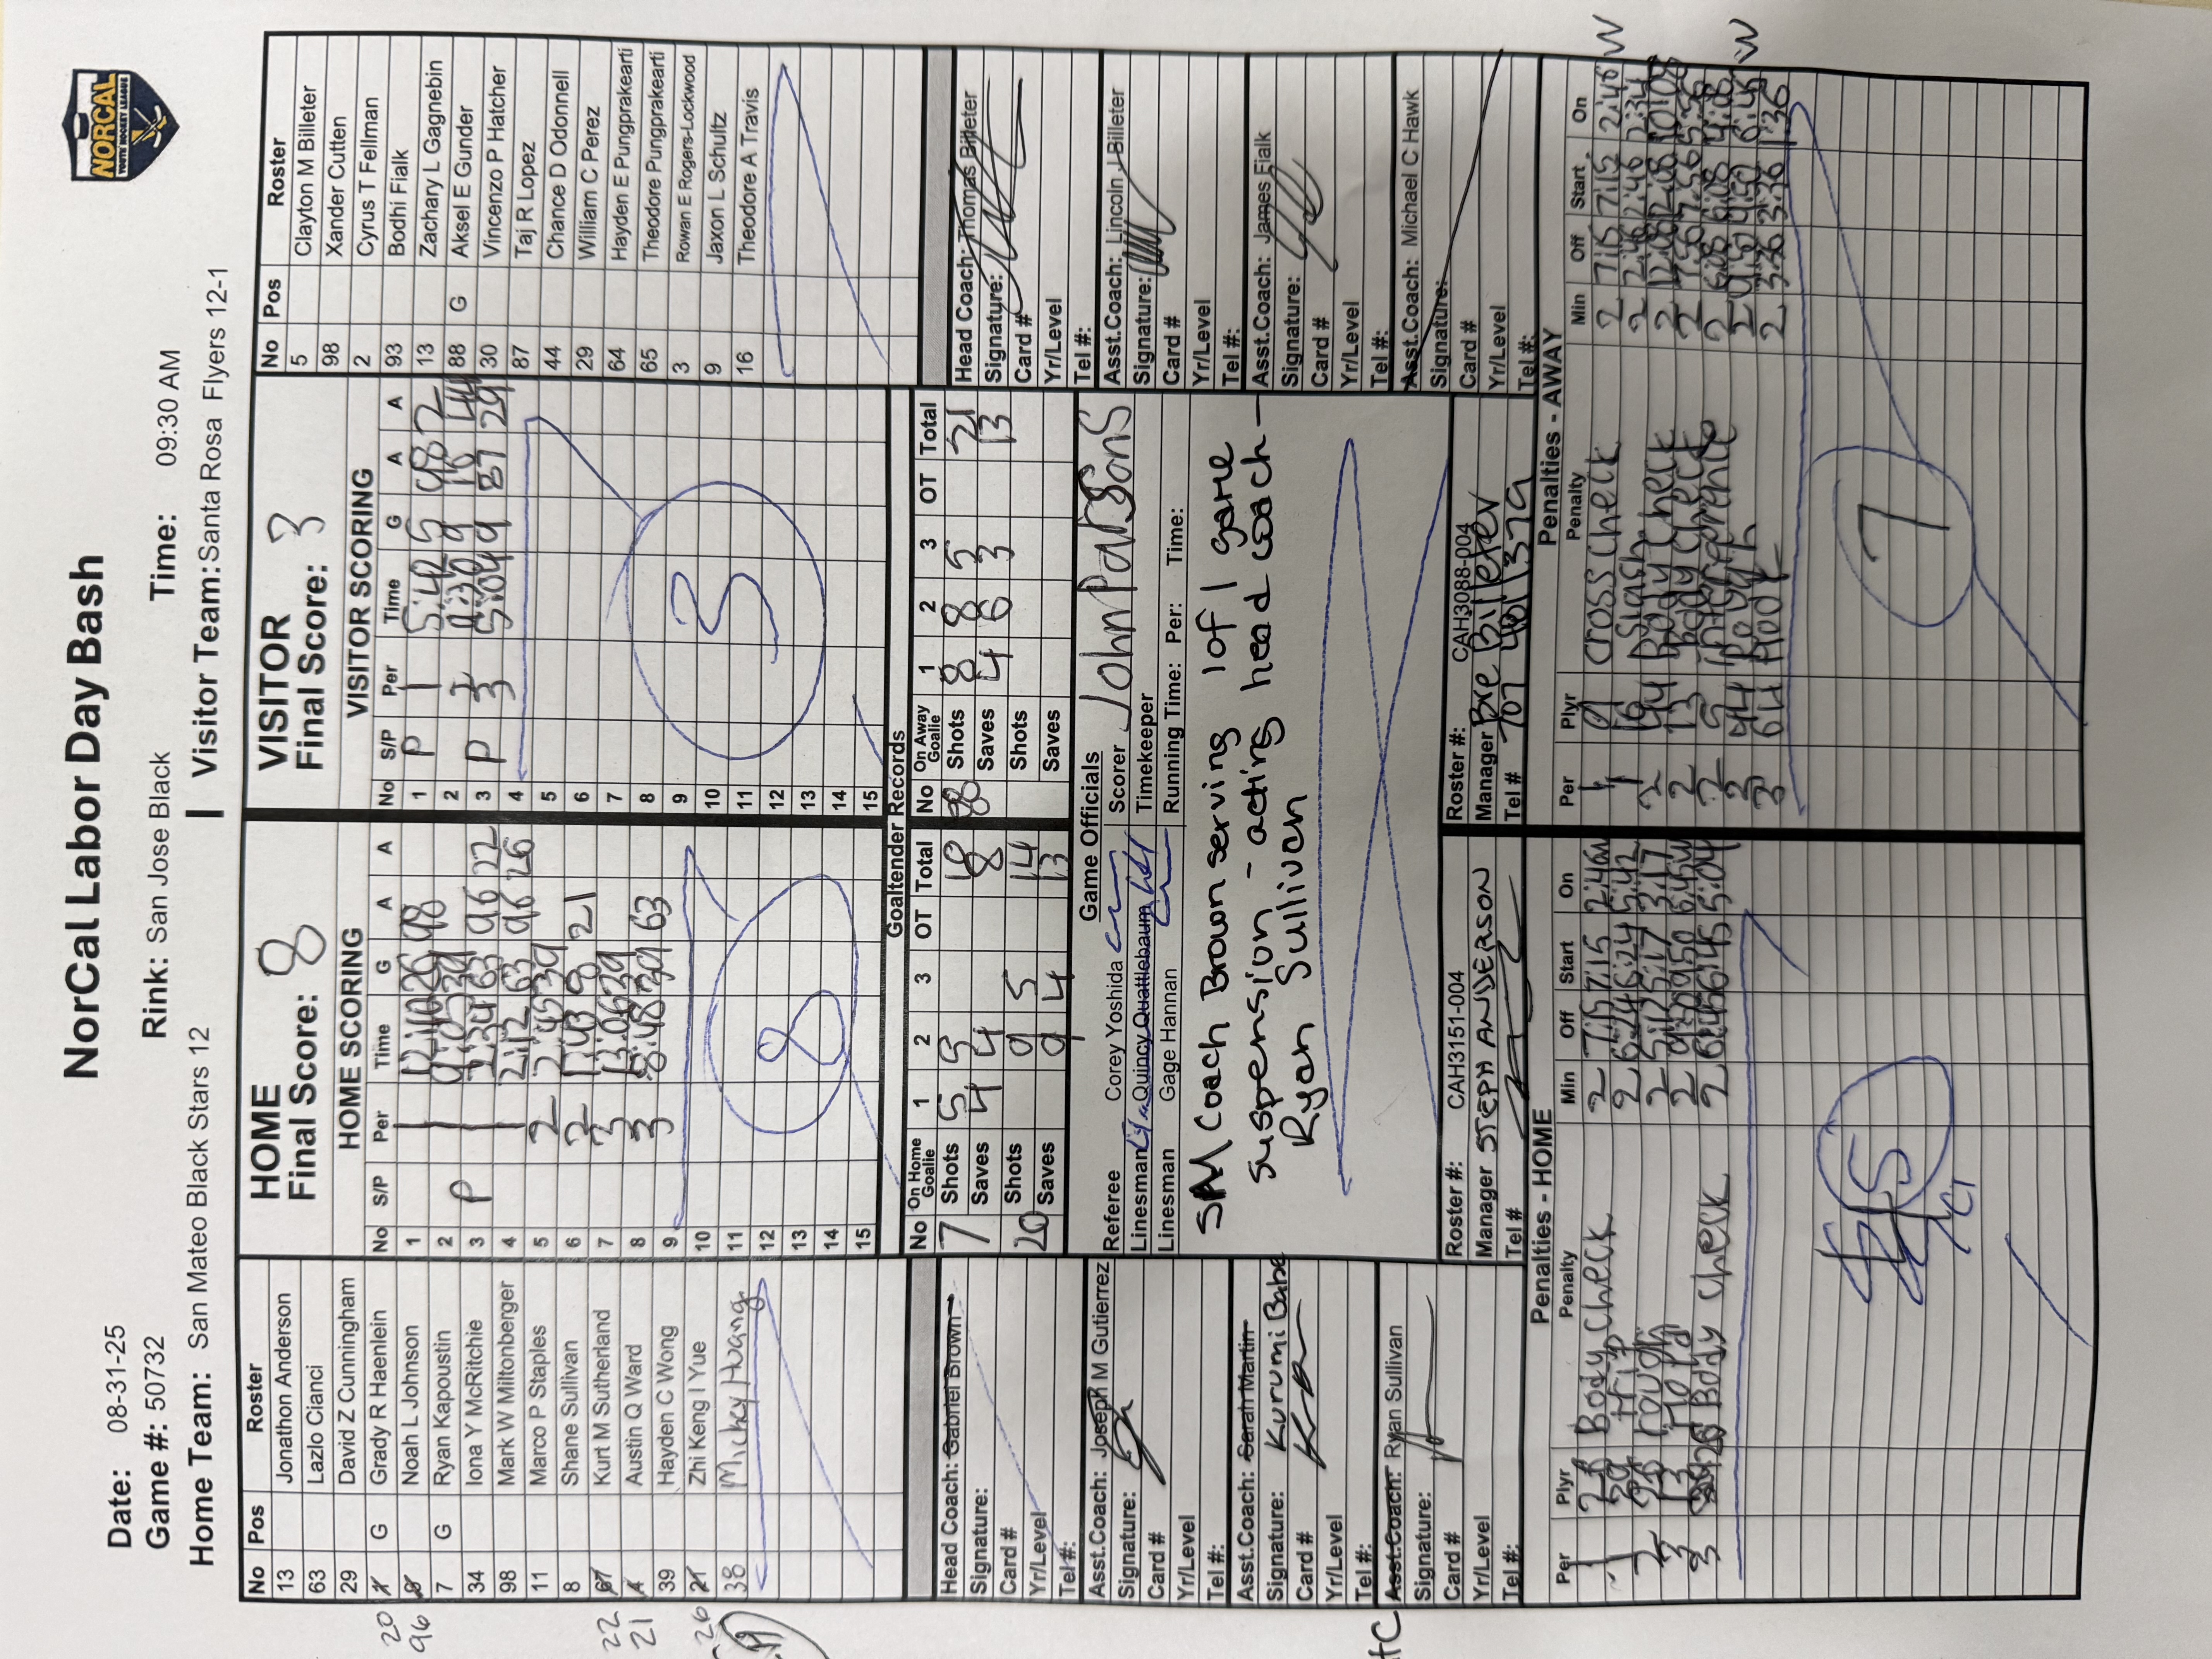 NorCal Labor Day Bash
NORCAL
YOUTH HOCKEY LEAGUE
Date: 08-31-25
Rink: San Jose Black
Time: 09:30 AM
Game #: 50732
Home Team: San Mateo Black Stars 12
Visitor Team: Santa Rosa Flyers 12-1
No Pos Roster
13 Jonathon Anderson
63 Lazlo Cianci
29 David Z Cunningham
20 G Grady R Haenlein
96 Noah L Johnson
7 G Ryan Kapoustin
34 Iona Y McRitchie
98 Mark W Miltonberger
11 Marco P Staples
8 Shane Sullivan
22 67 Kurt M Sutherland
21 Austin Q Ward
39 Hayden C Wong
26 21 Zhi Keng I Yue
38 Mickey Huang
HOME
Final Score: 8
HOME SCORING
No S/P Per Time G A A
1 1 12:10 26 98
2 1 39
3 P 1 63 96 22
4 1 2:12 63 96 26
5 2 2:45 39
6 2 1:43 8 21
7 3 39
8 3 8:48 39 63
9
10
11
12
13
14
15
8
VISITOR
Final Score: 3
VISITOR SCORING
No S/P Per Time G A A
1 P 1 5:42 5 98 2
2 9 16 44
3 P 3 5:04 9 87 29
4
5
6
7
8
9
10
11
12
13
14
15
3
No Pos Roster
5 Clayton M Billeter
98 Xander Cutten
2 Cyrus T Fellman
93 Bodhi Fialk
13 Zachary L Gagnebin
88 G Aksel E Gunder
30 Vincenzo P Hatcher
87 Taj R Lopez
44 Chance D Odonnell
29 William C Perez
64 Hayden E Pungprakearti
65 Theodore Pungprakearti
3 Rowan E Rogers-Lockwood
9 Jaxon L Schultz
16 Theodore A Travis
Goaltender Records
No On Home Goalie 1 2 3 OT Total
7 Shots 5 5 18
Saves 4 4 8
20 Shots 9 5 14
Saves 9 4 13
No On Away Goalie 1 2 3 OT Total
88 Shots 8 8 5 21
Saves 4 6 3 13
Shots
Saves
Head Coach: Gabriel Brown
Signature:
Card #
Yr/Level
Tel #:
Asst.Coach: Joseph M Gutierrez
Signature:
Card #
Yr/Level
Tel #:
Asst.Coach: Sarah Martin
Kurumi Babe
Signature:
Card #
Yr/Level
Tel #:
HC Asst.Coach: Ryan Sullivan
Signature:
Card #
Yr/Level
Tel #:
Game Officials
Referee Corey Yoshida
Linesman Quincy Quattlebaum
Linesman Gage Hannan
Scorer John Parsons
Timekeeper
Running Time: Per: Time:
SM Coach Brown serving 1 of 1 game
suspension - acting head coach -
Ryan Sullivan
Roster #: CAH3151-004
Manager STEPH ANDERSON
Tel #
Roster #: CAH3088-004
Manager Bre Billeter
Tel # 707 481 1379
Head Coach: Thomas Billeter
Signature:
Card #
Yr/Level
Tel #:
Asst.Coach: Lincoln J Billeter
Signature:
Card #
Yr/Level
Tel #:
Asst.Coach: James Fialk
Signature:
Card #
Yr/Level
Tel #:
Asst.Coach: Michael C Hawk
Signature:
Card #
Yr/Level
Tel #:
Penalties - HOME
Per Plyr Penalty Min Off Start On
1 Body Check 2 7:15 7:15 2:46
1 Trip 2 6:24 6:24 5:42
2 rough 2 5:17 5:17 3:17
3 13 Hold 2 9:50 9:50 6:45
3 26 Body Check 2 6:45 6:45 5:04
5
Penalties - AWAY
Per Plyr Penalty Min Off Start On
1 9 Cross Check 2 7:15 7:15 2:46 W
1 16 Slash 2 2:46 2:46 2:34
2 44 Body Check 2 12:08 12:08 10:08
2 13 Body Check 2 7:56 7:56 5:56
2 5 Interference 2 6:08 6:08 4:08
44 Rough 2 9:50 9:50 6:45 W
3 64 Hook 2 3:36 3:36 1:36
7